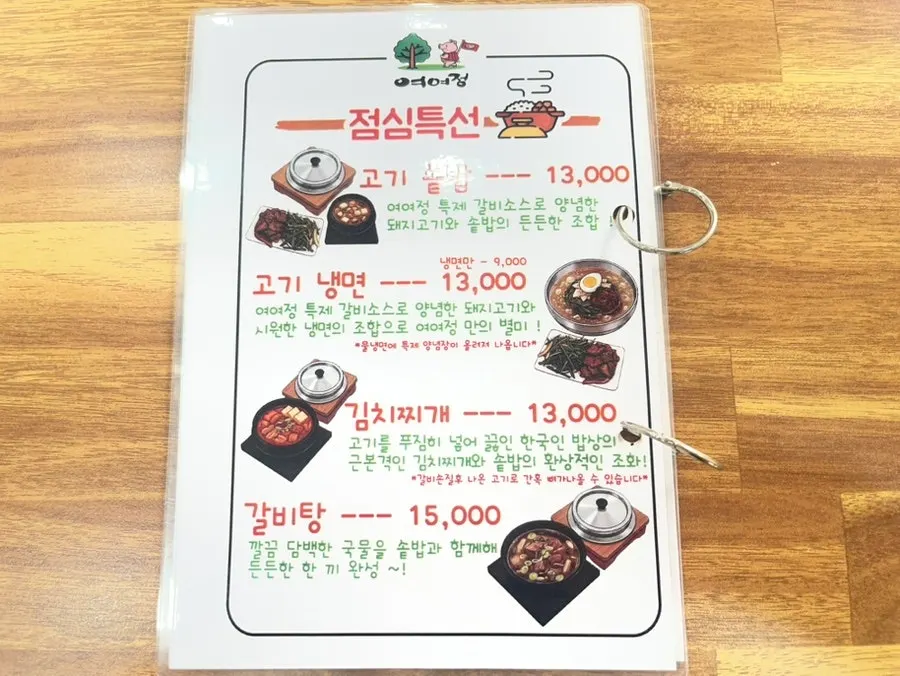 여여정
점심특선
고기 솥밥 --- 13,000
여여정 특제 갈비소스로 양념한
돼지고기와 솥밥의 든든한 조합 !
냉면만 - 9,000
고기 냉면 --- 13,000
여여정 특제 갈비소스로 양념한 돼지고기와
시원한 냉면의 조합으로 여여정 만의 별미 !
*물냉면에 특제 양념장이 올려져 나옵니다*
김치찌개 --- 13,000
고기를 푸짐히 넣어 끓인 한국인 밥상의
근본격인 김치찌개와 솥밥의 환상적인 조화!
*갈비손질후 나온 고기로 간혹 뼈가나올 수 있습니다*
갈비탕 --- 15,000
깔끔 담백한 국물을 솥밥과 함께해
든든한 한 끼 완성 ~!